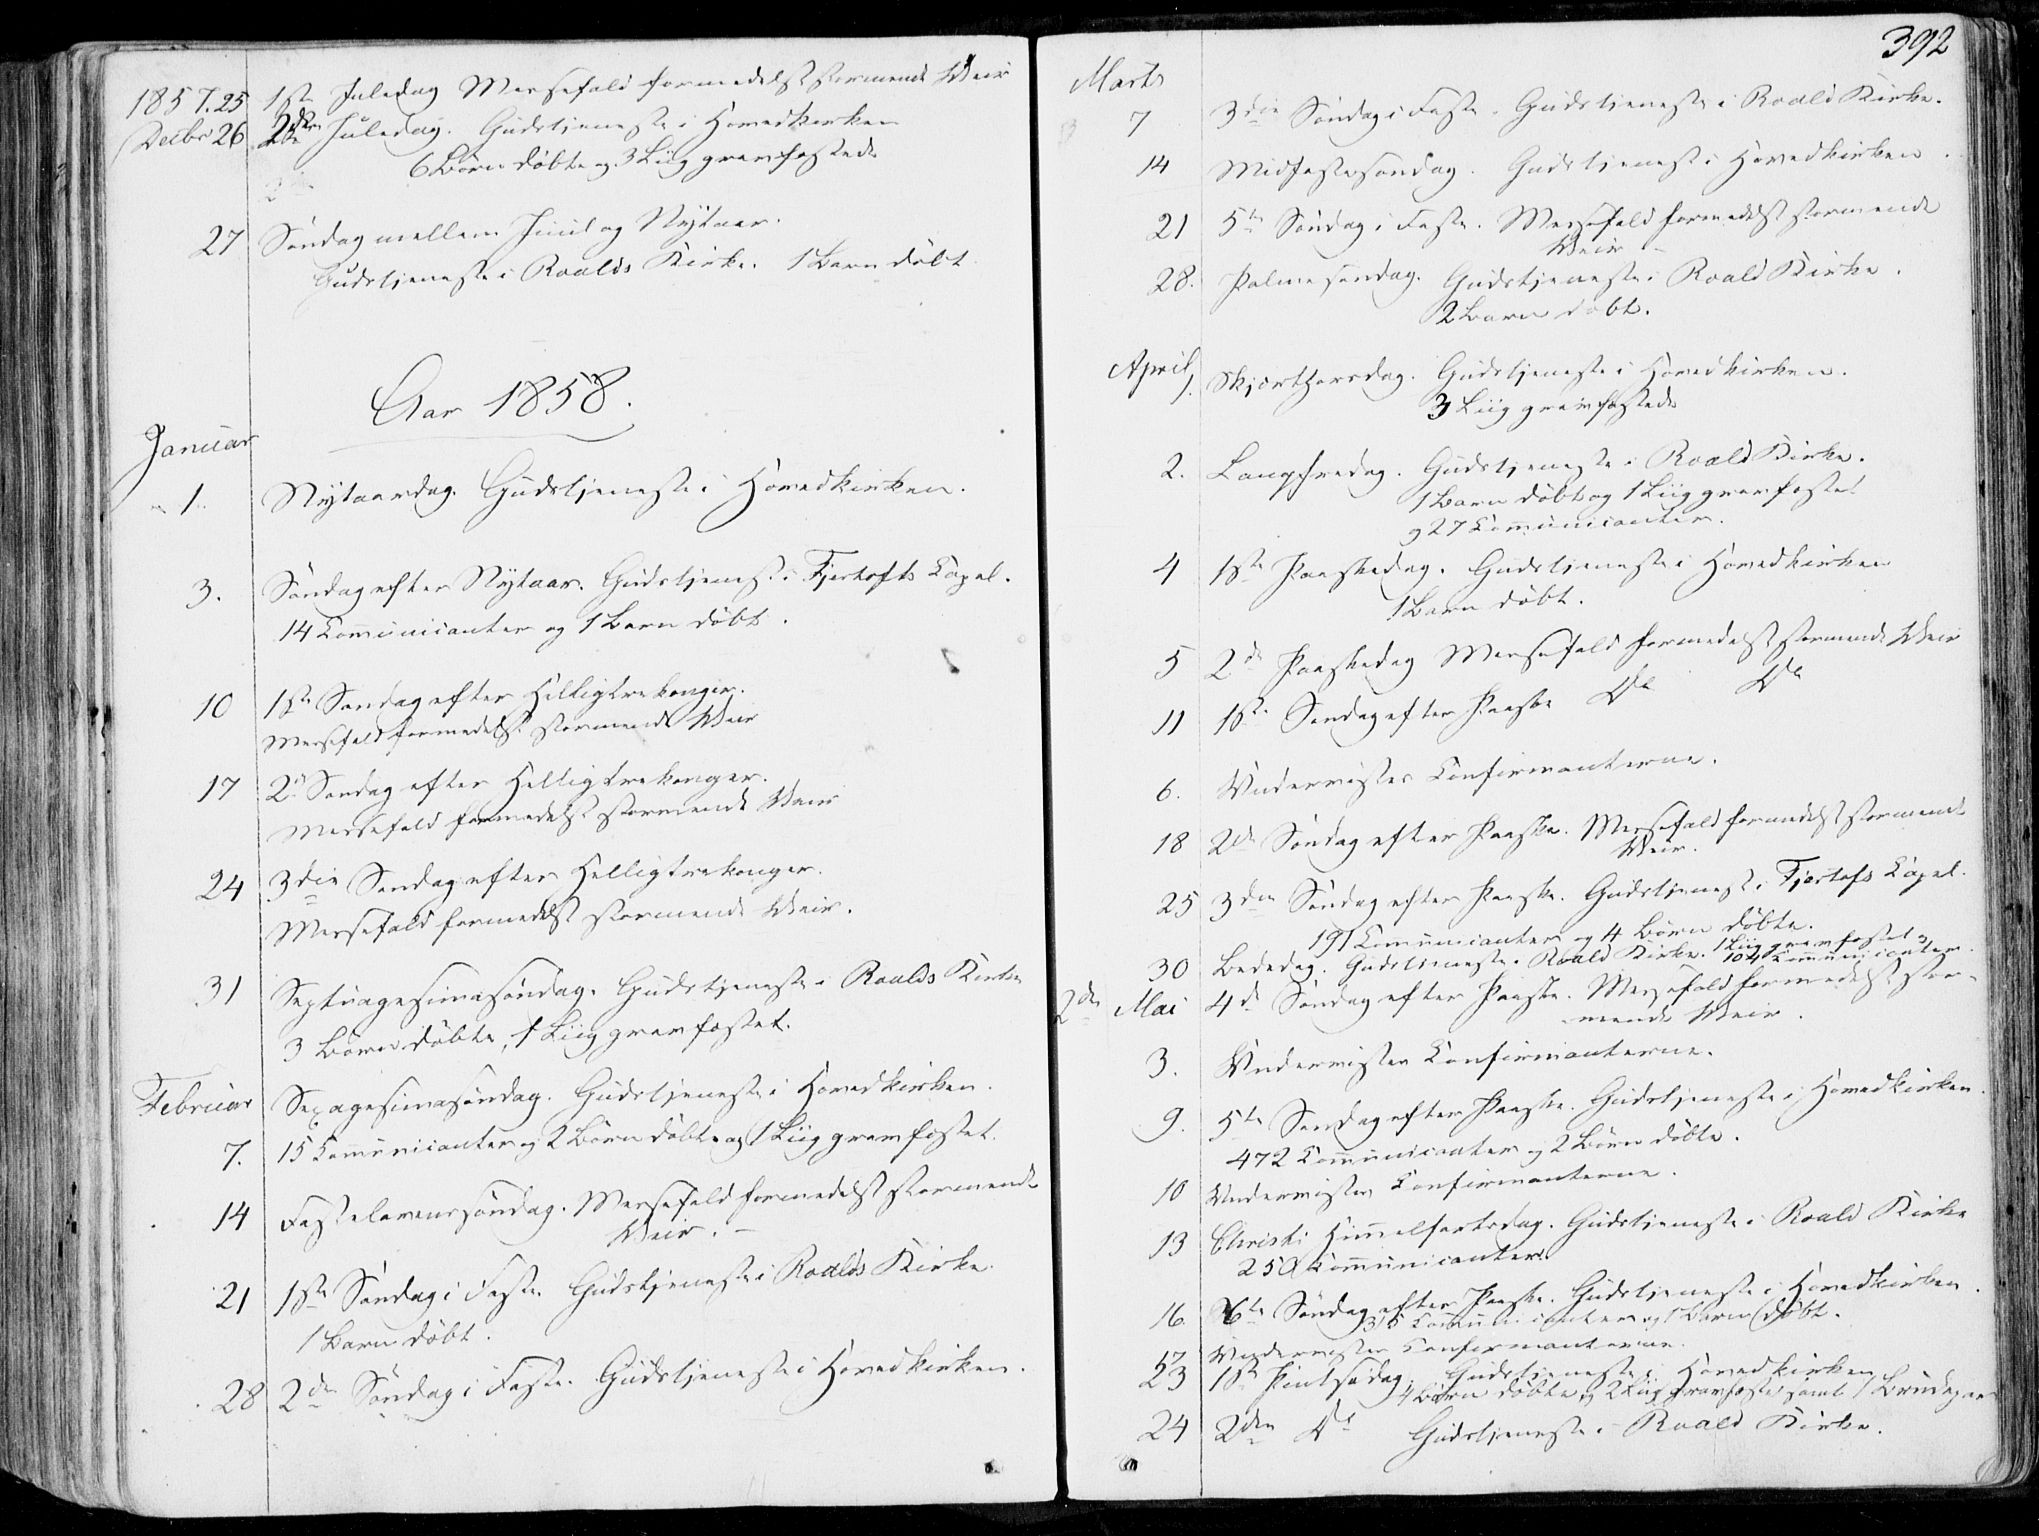 1857. 25 1ste Juledag Messefald formedelst stormende Veir
Decbr 26 2den Juledag. Gudstjeneste i Hovedkirken
6 Børn døbte og 3 Liig gravfæstede
27 Søndag mellem Juul og Nytaar.
Gudstjeneste i Roalds Kirke. 1 Barn døbt
Aar 1858.
Januar
1. Nytaarsdag. Gudstjeneste i Hovedkirken.
3. Søndag efter Nytaar. Gudstjeneste i Fjertofts Capel.
14 Communicanter og 1 Barn døbt.
10 1ste Søndag efter Helligtrekonger.
Messefald formedelst stormende Veir
17 2d Søndag efter Helligtrekonger.
Messefald formedelst stormende Veir
24 3die Søndag efter Helligtrekonger.
Messefald formedelst stormende Veir.
31 Septuagesimasøndag. Gudstjeneste i Roalds Kirke
3 Børn døbte, 1 Liig gravfæstet.
Februar Sexagesimasøndag. Gudstjeneste i Hovedkirken.
7. 15 Communicanter og 2 Børn døbte og 1 Liig gravfæstet.
14 Fastelavenssøndag. Messefald formedelst stormende
Veir. -
21 1ste Søndag i Faste. Gudstjeneste i Roalds Kirke.
1 Barn døbt.
28 2den Søndag i Faste. Gudstjeneste i Hovedkirken.
392
Marts
7 3die Søndag i Faste. Gudstjeneste i Roald Kirke.
14 Midfastesøndag. Gudstjeneste i Hovedkirken.
21 5te Søndag i Faste. Messefald formedelst stormende
Veir
28. Palmesøndag. Gudstjeneste i Roald Kirke.
2 Børn døbt.
April
1. Skjærthorsdag. Gudstjeneste i Hovedkirken.
3 Liig gravfæstede
2. Langfredag. Gudstjeneste i Roald Kirke.
1 Barn døbt og 1 Liig gravfæstet
og 27 Communicanter.
4 1ste Paaskedag. Gudstjeneste i Hovedkirken
1 Barn døbt.
5 2de Paaskedag Messefald formedelst stormende Veir
11 1ste Søndag efter Paaske Do Do
6. Underviistes Confirmanterne.
18 2de Søndag efter Paaske. Messefald formedelst stormende
Veir.
25 3die Søndag efter Paaske. Gudstjeneste i Fjertofs Capel.
191 Communicanter og 4 Børn døbte.
30 Bededag. Gudstjeneste i Roald Kirke. 1 Liig gravfæstet
104 Communicanter.
2den Mai 4de Søndag efter Paaske. Messefald formedelst stor-
mende Veir.
3. Underviistes Confirmanterne.
9. 5te Søndag efter Paaske. Gudstjeneste i Hovedkirken.
472 Communicanter og 2 Børn døbte.
10 Underviistes Confirmanterne.
13 Christi Himmelfartsdag. Gudstjeneste i Roald Kirke
250 Communicanter.
16. 6te Søndag efter Paaske. Gudstjeneste i Hovedkirken.
315 Communicanter og 1 Barn døbt.
17 Underviistes Confirmanterne.
23 1ste Pintsedag. Gudstjeneste i Hovedkirken
4 Børn døbte og 2 Liig gravfæstet samt 1 Brudepar
24 2den Do Gudstjeneste i Roald Kirke.